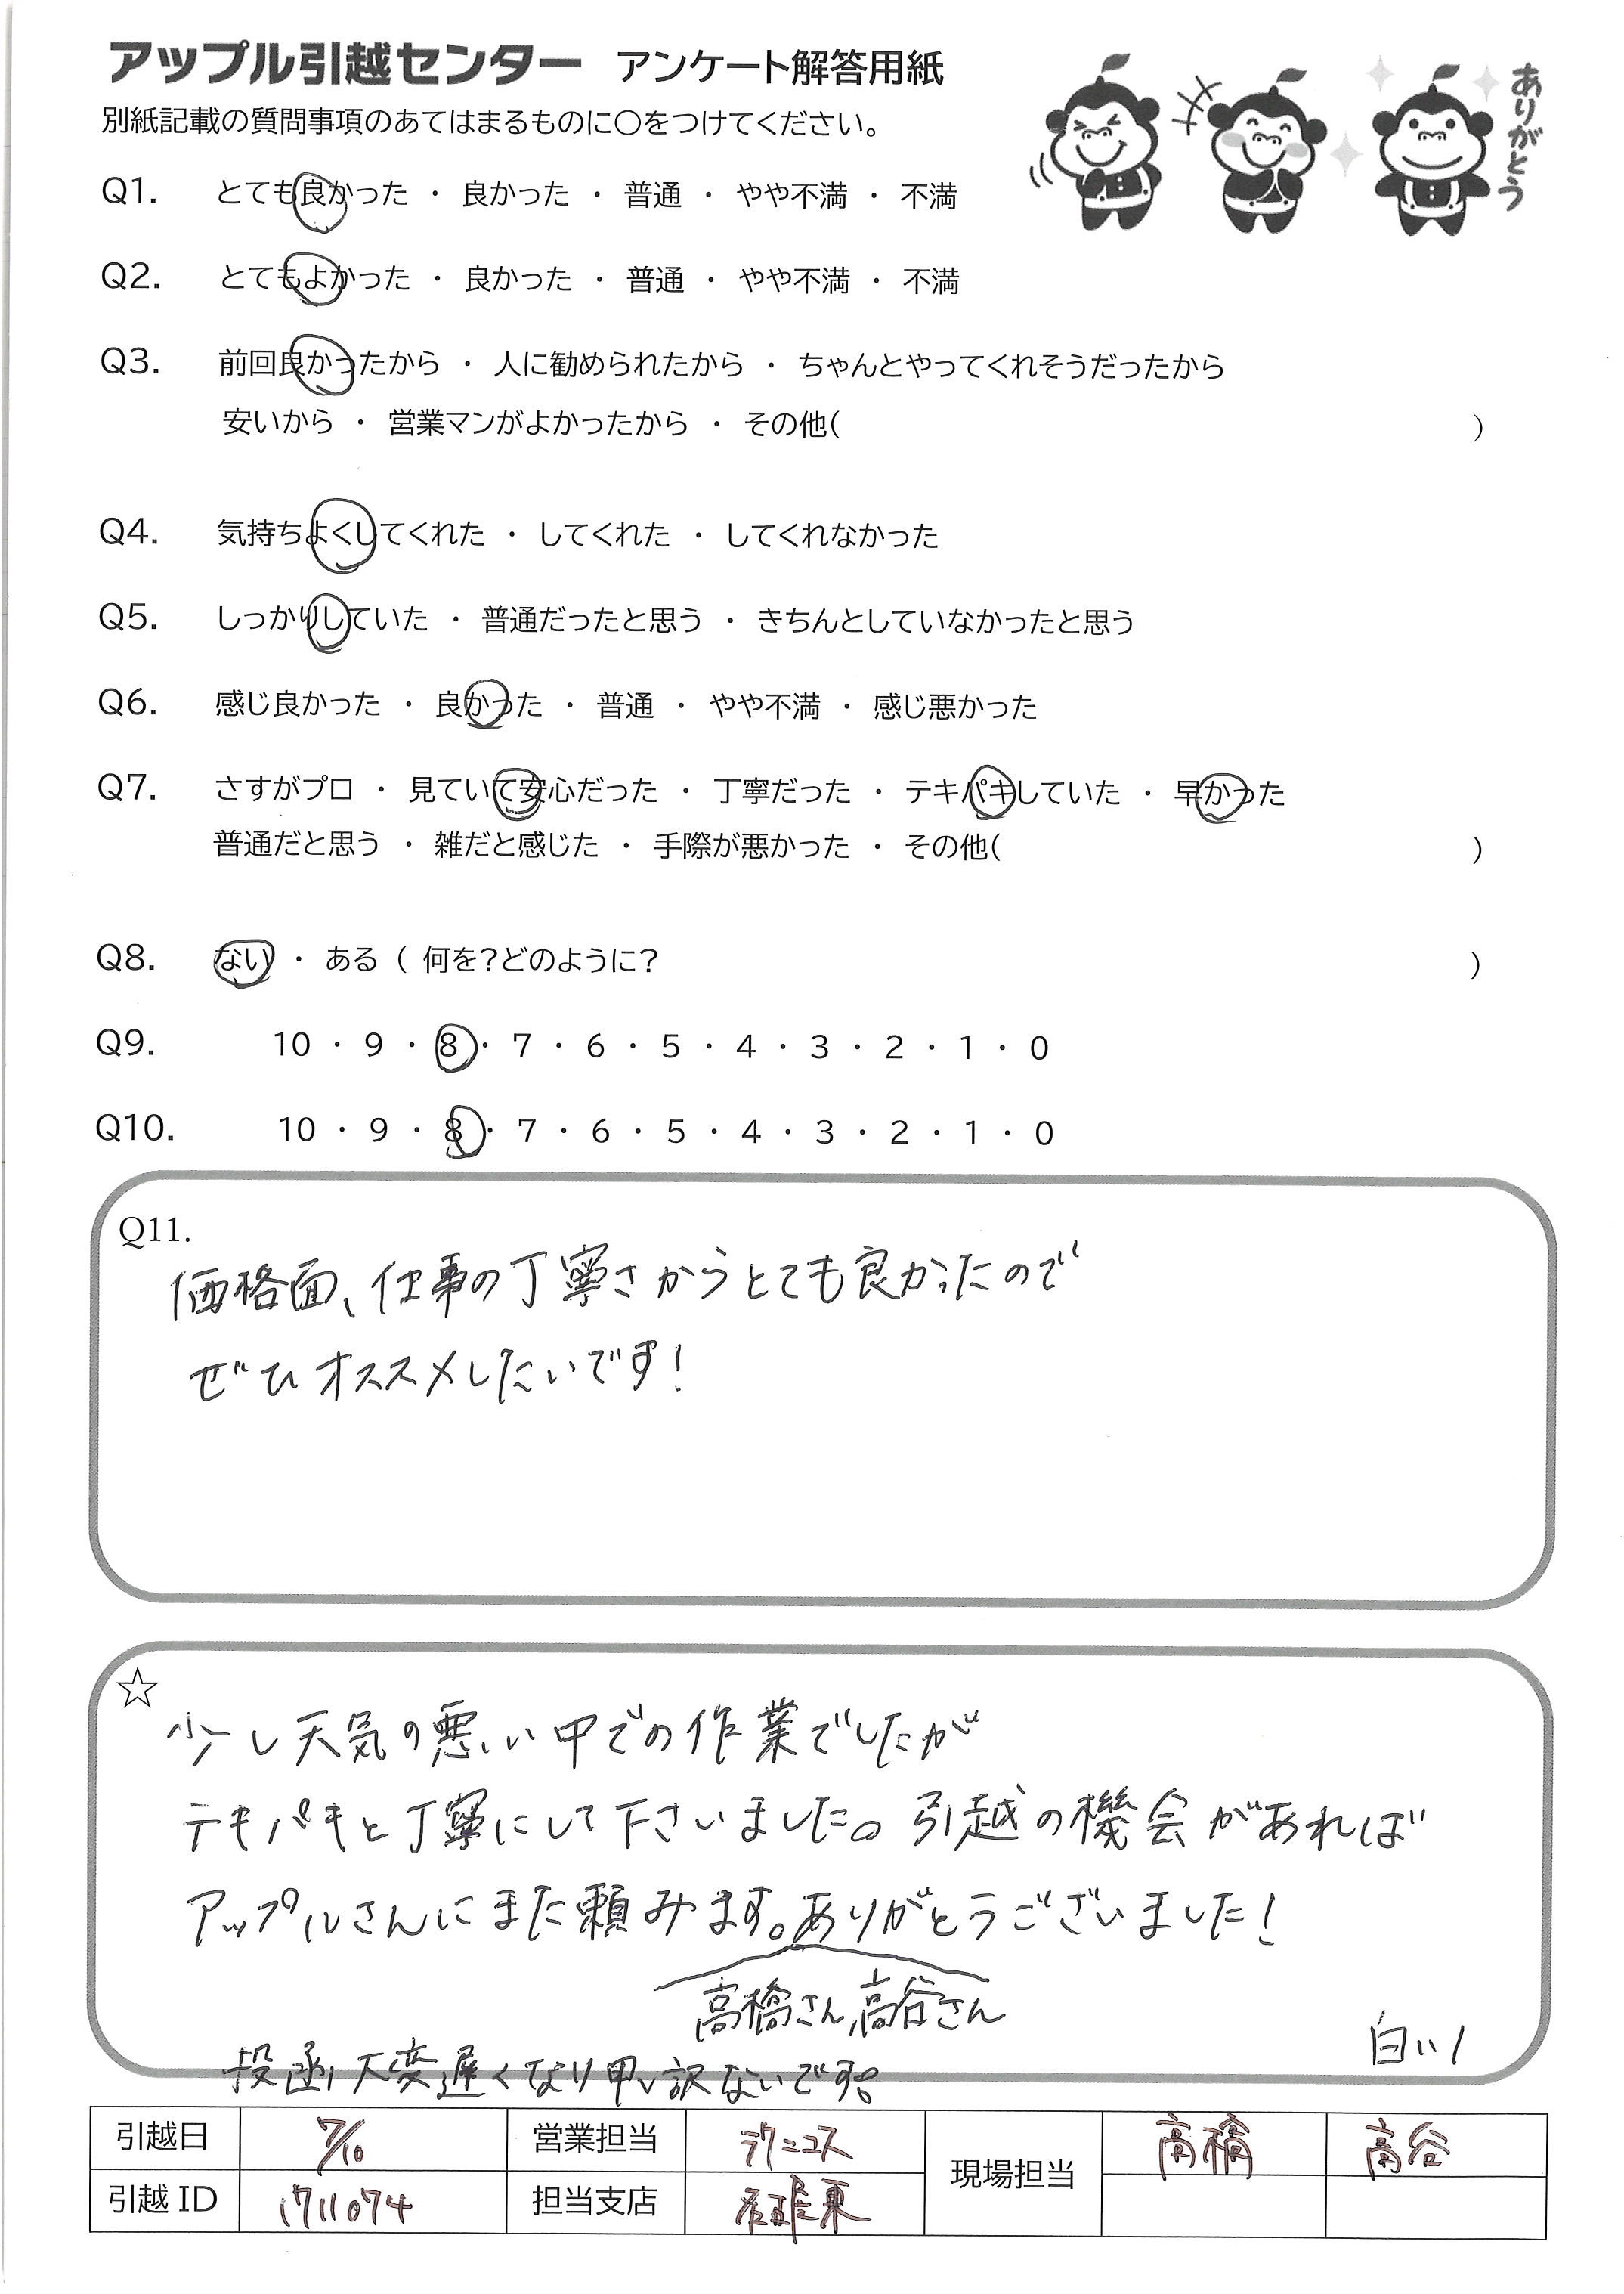 アップル引越センター アンケート解答用紙
ありがとう
別紙記載の質問事項のあてはまるものに○をつけてください。
Q1. とても良かった ・ 良かった ・ 普通 ・ やや不満 ・ 不満
Q2. とてもよかった ・ 良かった ・ 普通 ・ やや不満 ・ 不満
Q3. 前回良かったから ・ 人に勧められたから ・ ちゃんとやってくれそうだったから
安いから ・ 営業マンがよかったから ・ その他( )
Q4. 気持ちよくしてくれた ・ してくれた ・ してくれなかった
Q5. しっかりしていた ・ 普通だったと思う ・ きちんとしていなかったと思う
Q6. 感じ良かった ・ 良かった ・ 普通 ・ やや不満 ・ 感じ悪かった
Q7. さすがプロ ・ 見ていて安心だった ・ 丁寧だった ・ テキパキしていた ・ 早かった
普通だと思う ・ 雑だと感じた ・ 手際が悪かった ・ その他( )
Q8. ない ・ ある ( 何を?どのように? )
Q9. 10 ・ 9 ・ 8 ・ 7 ・ 6 ・ 5 ・ 4 ・ 3 ・ 2 ・ 1 ・ 0
Q10. 10 ・ 9 ・ 8 ・ 7 ・ 6 ・ 5 ・ 4 ・ 3 ・ 2 ・ 1 ・ 0
Q11.
価格面、仕事の丁寧さからとても良かったので
ぜひオススメしたいです!
☆
少し天気の悪い中での作業でしたが
テキパキと丁寧にして下さいました。引越の機会があれば
アップルさんにまた頼みます。ありがとうございました!
高橋さん,高谷さん
投函大変遅くなり申し訳ないです。
引越日 7/10 営業担当 現場担当 高橋 高谷
引越ID 1711074 担当支店